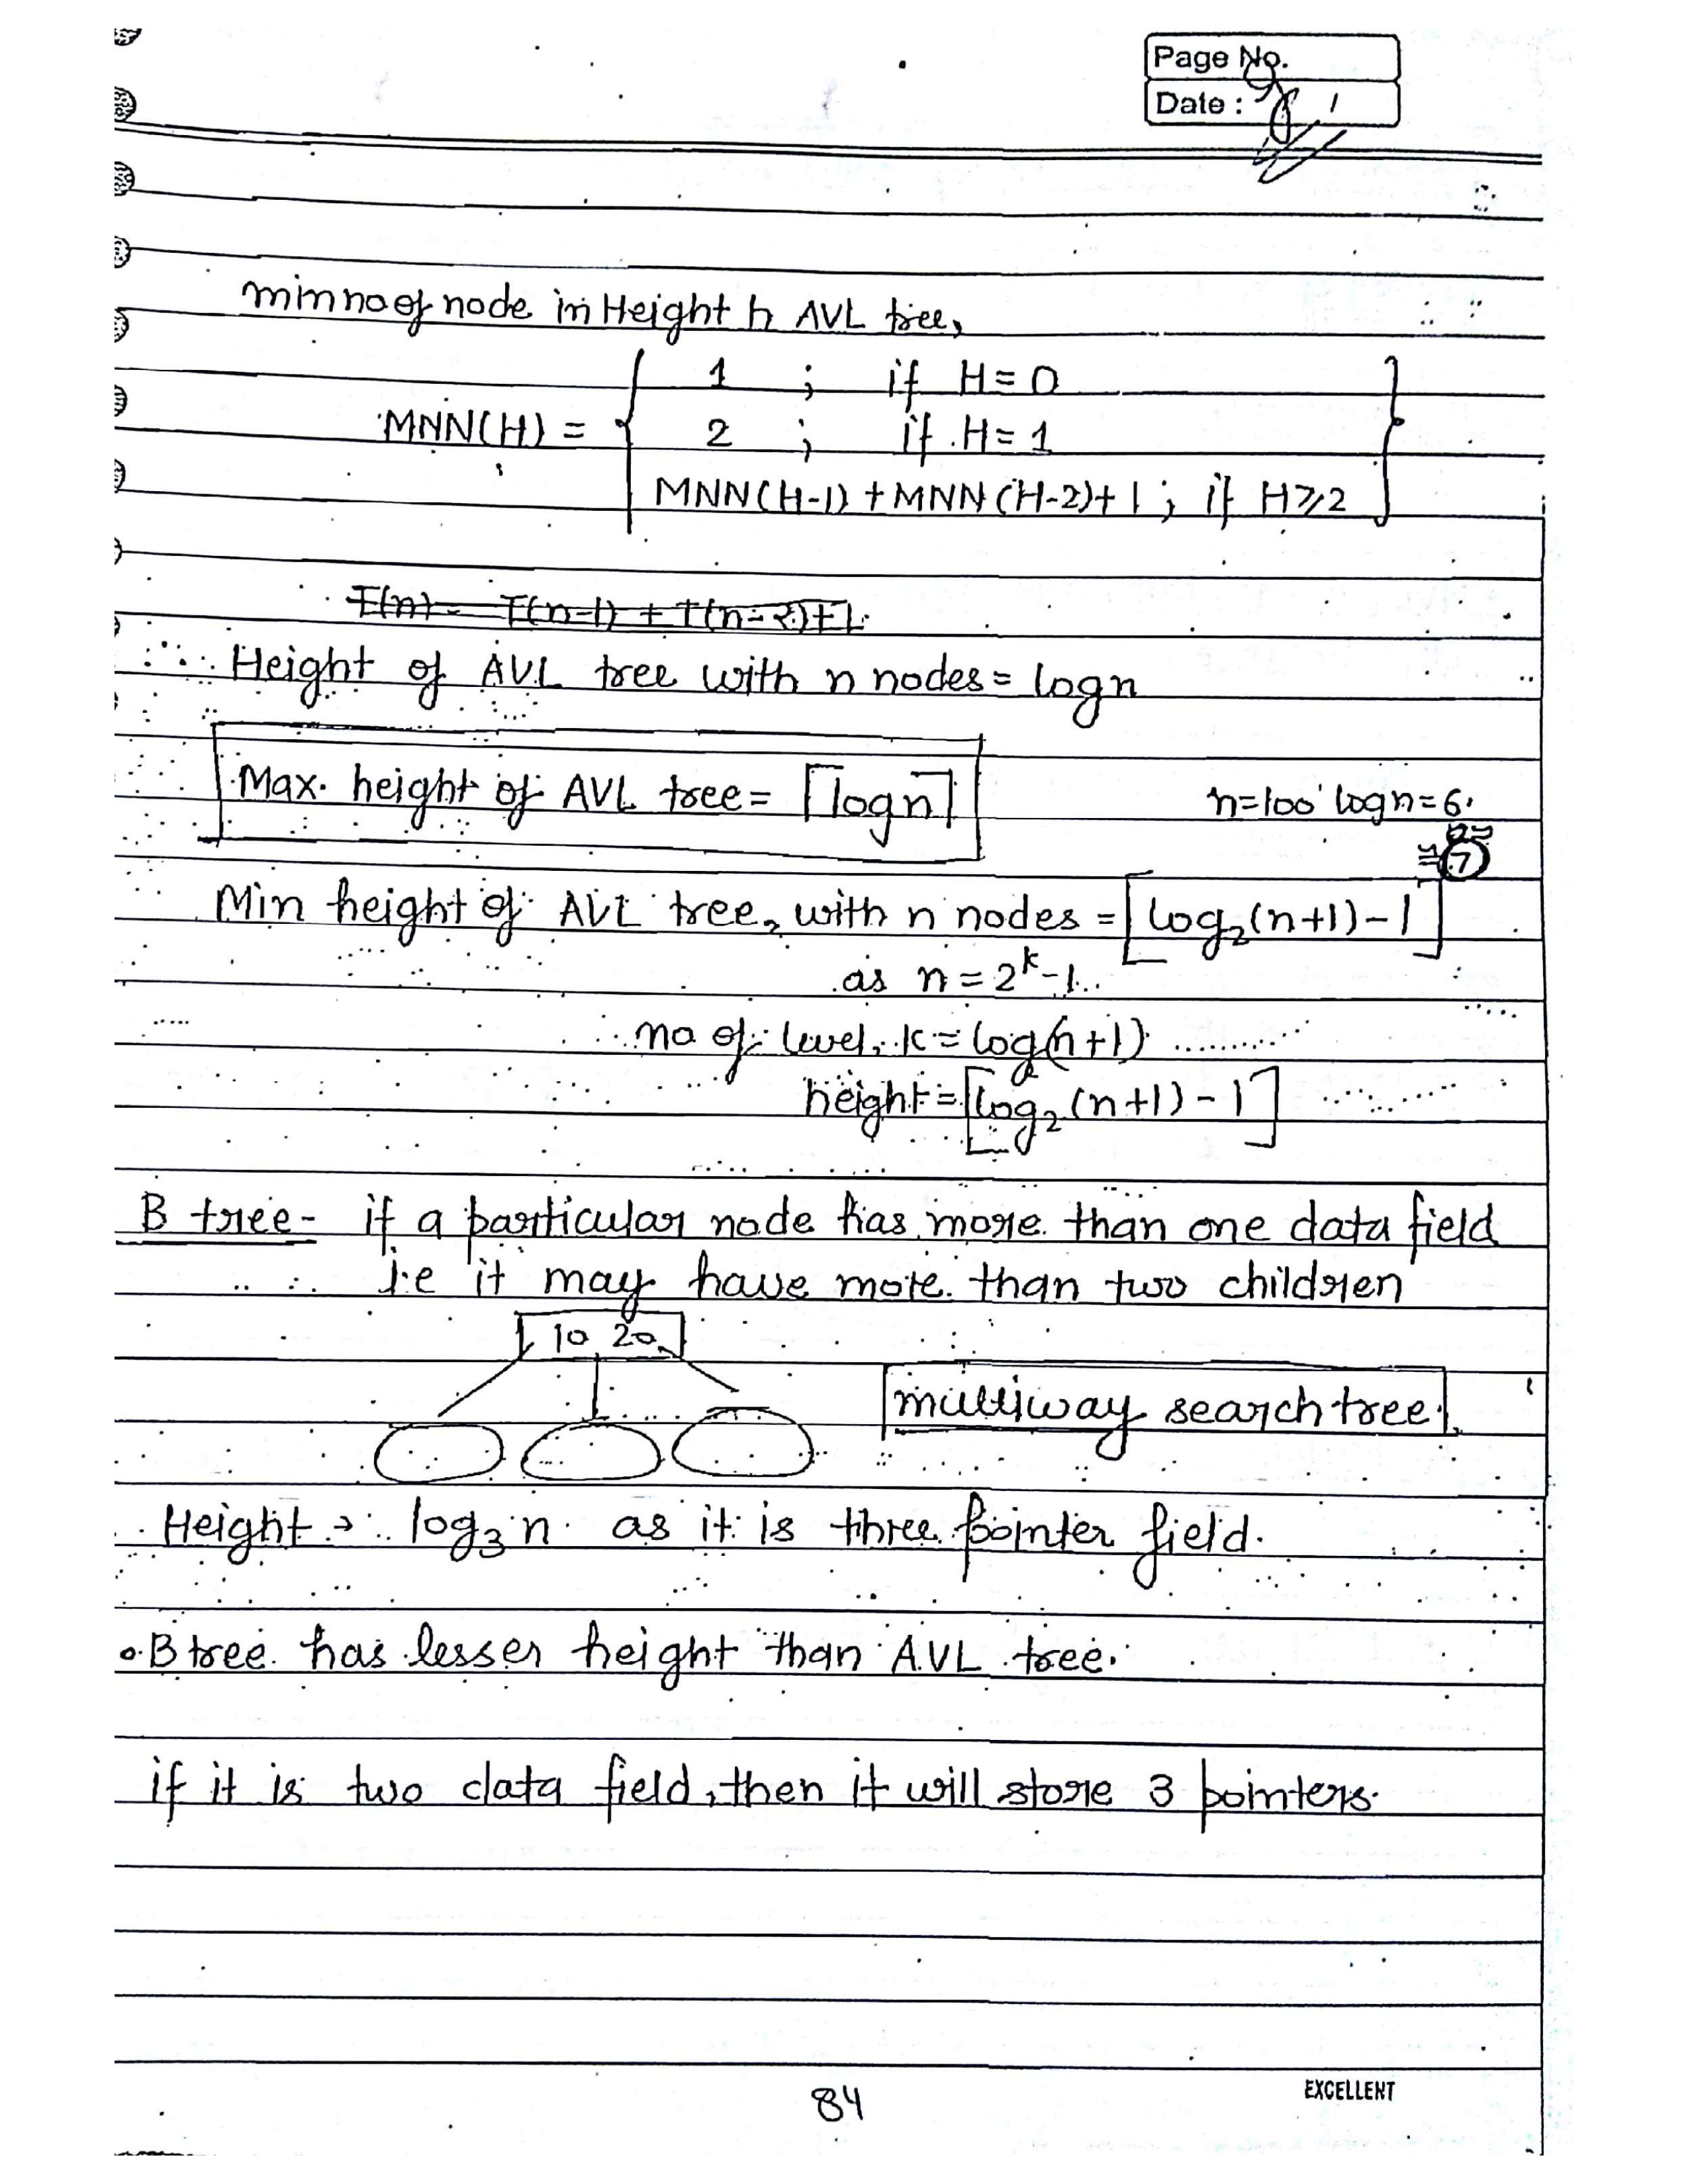 Page No.
Date :
min no of node in Height h AVL tree,
1 ; if H = 0
MNN(H) = 2 ; if H = 1
MNN(H-1) + MNN(H-2) + 1 ; if H ⩾ 2
T(n) = T(n-1) + T(n-2) + 1
∴ Height of AVL tree with n nodes = logn
Max. height of AVL tree = ⌈logn⌉
n=100 logn=6.
≅ 7
Min height of AVL tree, with n nodes = ⌊log₂(n+1) - 1⌋
as n = 2ᵏ - 1
no of level, k = log₂(n+1)
height = ⌊log₂(n+1) - 1⌋
B tree - if a particular node has more than one data field
i.e it may have more than two children
10 20
multiway search tree
Height → log₃n as it is three pointer field.
B tree has lesser height than AVL tree.
if it is two data field, then it will store 3 pointers.
84
EXCELLENT